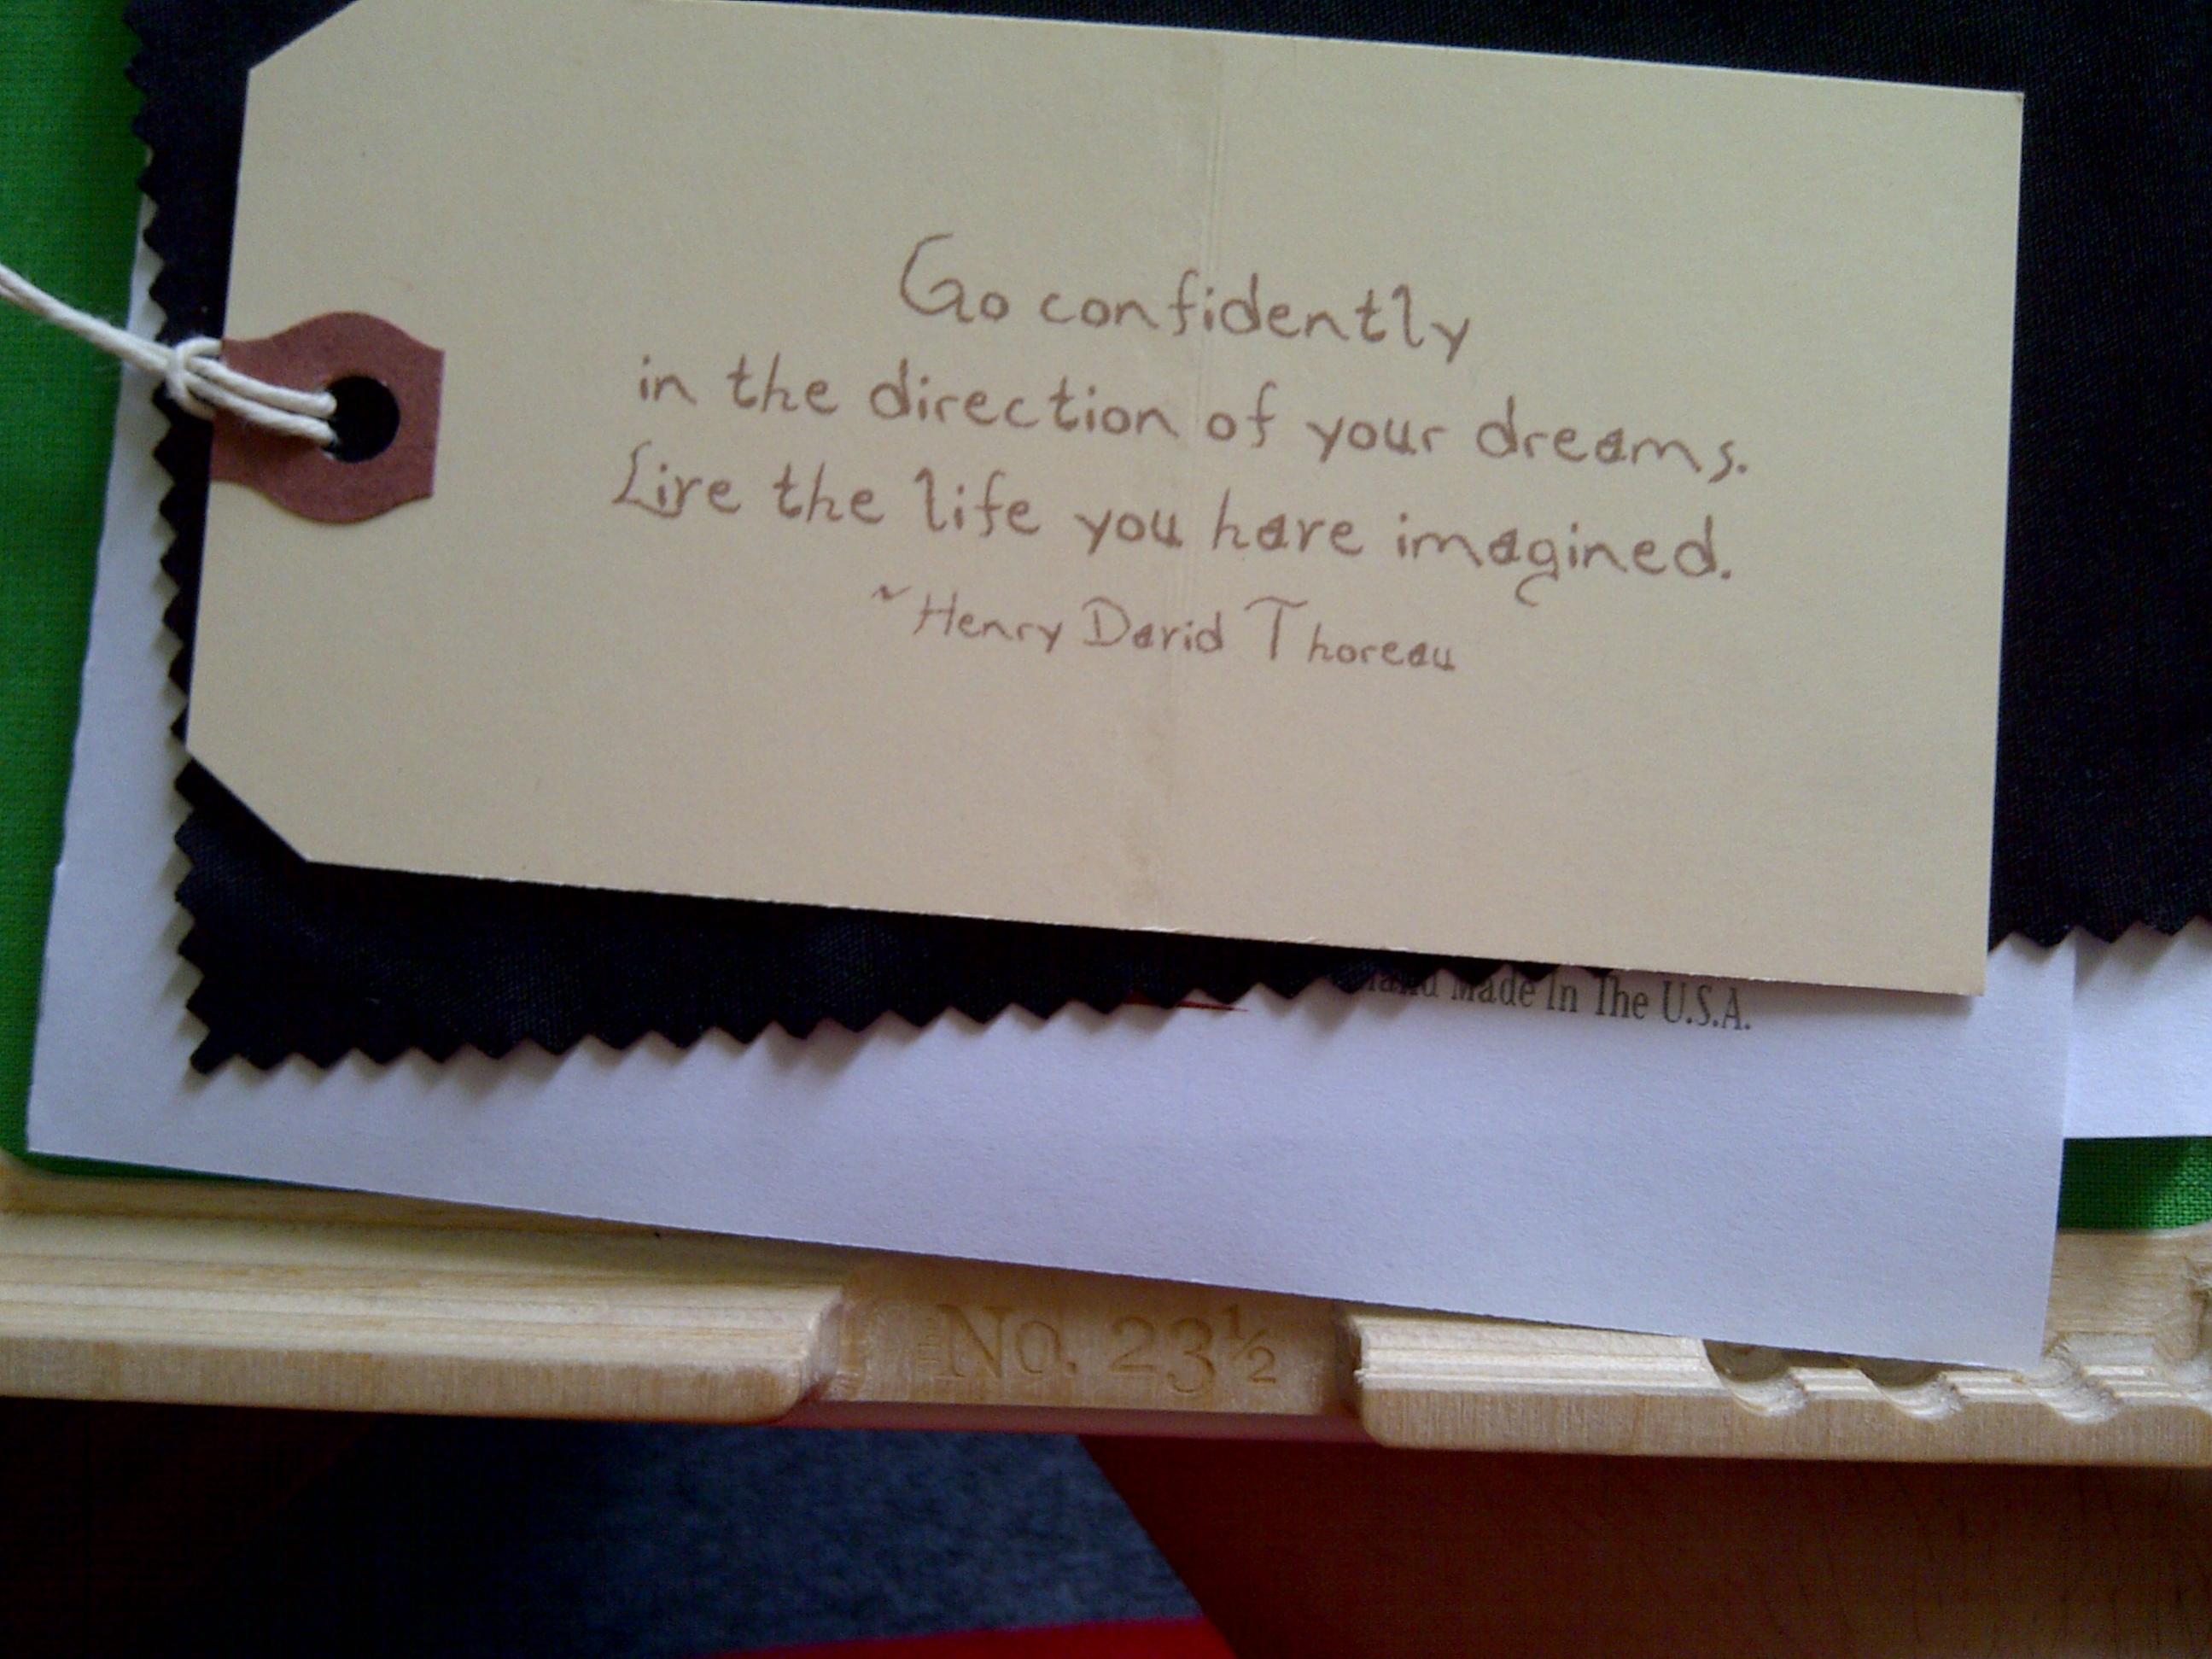 Go confidently
in the direction of your dreams.
Live the life you have imagined.
~Henry David Thoreau
Hand Made In The U.S.A.
No. 23½